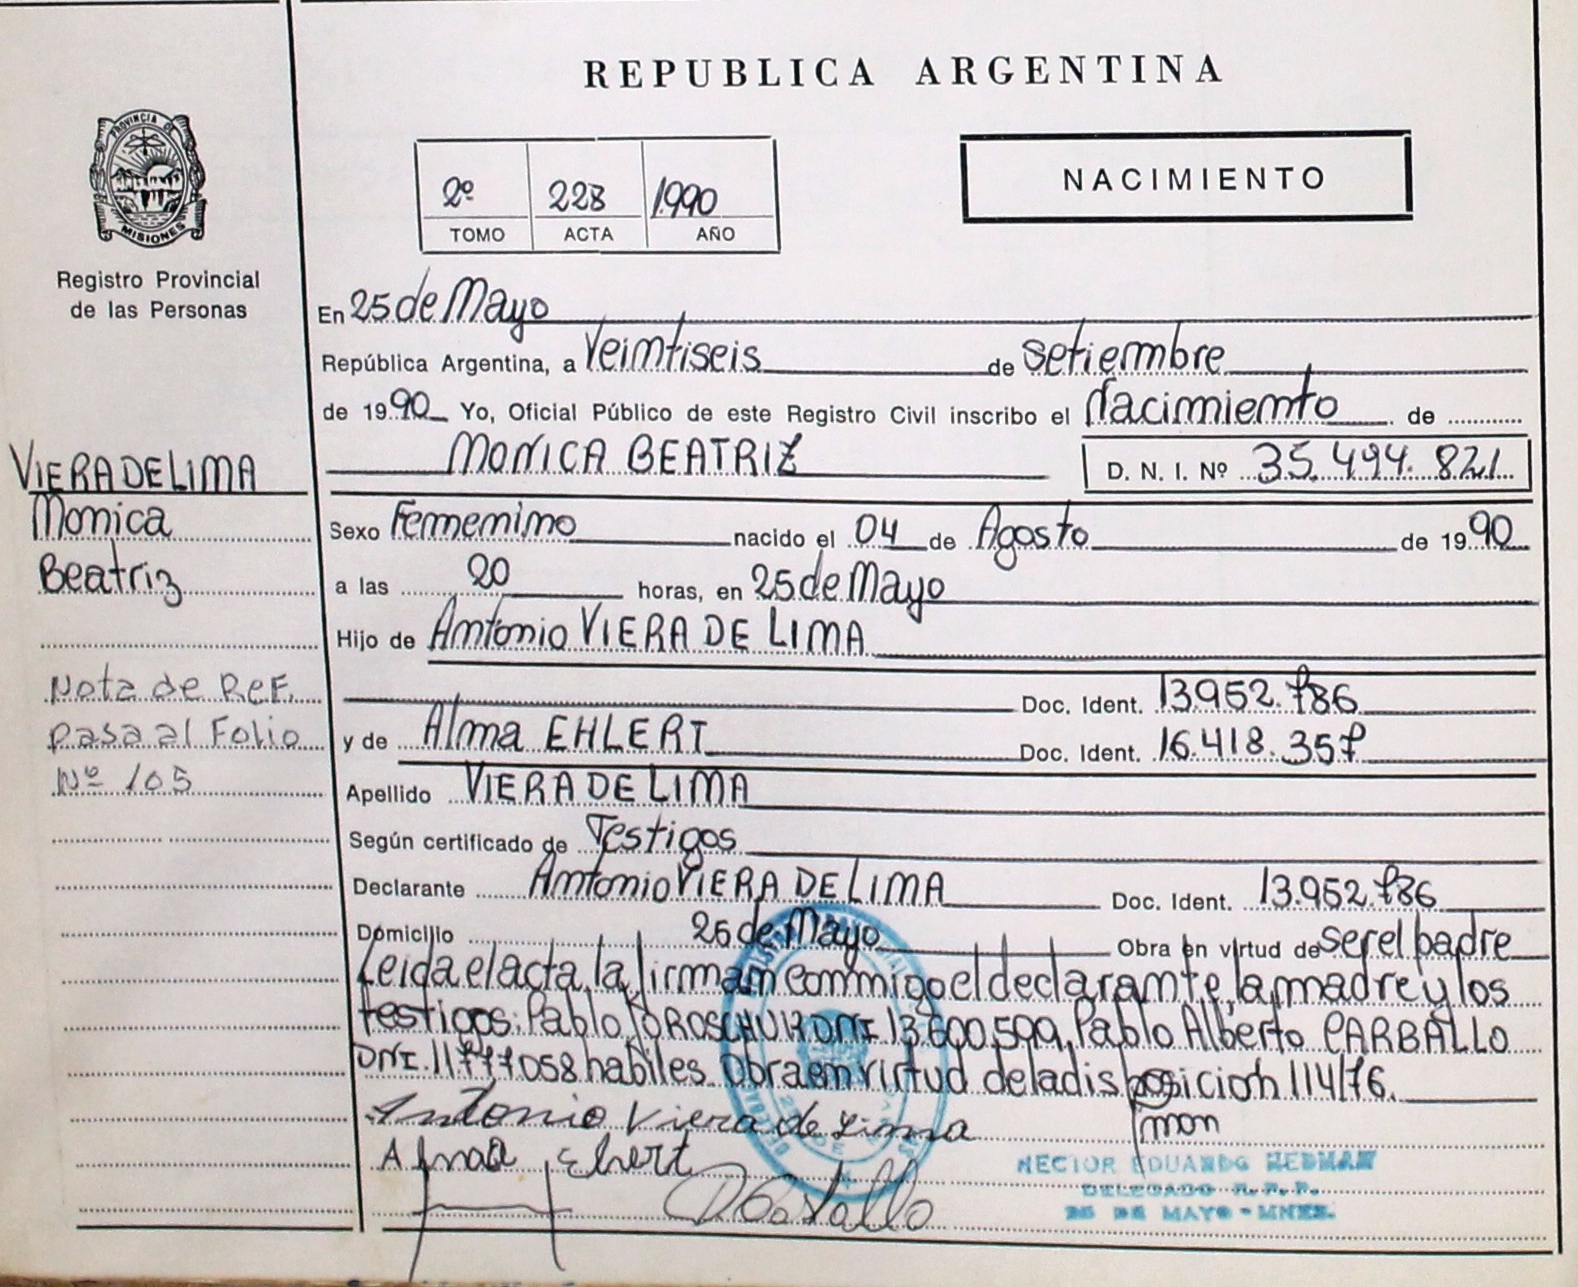 REPUBLICA ARGENTINA
PROVINCIA DE
MISIONES
Registro Provincial
de las Personas
2º 228 1990
TOMO ACTA AÑO
NACIMIENTO
En 25 de Mayo
República Argentina, a Veintiseis de setiembre
de 1990 Yo, Oficial Público de este Registro Civil inscribo el Nacimiento de
MONICA BEATRIZ D. N. I. Nº 35.494.821
VIERA DE LIMA
Monica
Beatriz
Sexo Femenino nacido el 04 de Agosto de 1990
a las 20 horas, en 25 de Mayo
Hijo de Antonio VIERA DE LIMA
Doc. Ident. 13.952.786
y de Alma EHLERT Doc. Ident. 16.418.357
Nota de Ref.
pasa al Folio
Nº 105
Apellido VIERA DE LIMA
Según certificado de Testigos
Declarante Antonio VIERA DE LIMA Doc. Ident. 13.952.786
Domicilio 25 de Mayo Obra en virtud de ser el padre
Leida el acta, la firman conmigo el declarante, la madre y los
testigos: Pablo DNI 13.600.599, Pablo Alberto CARBALLO
DNI. 11.777.058 habiles. Obra en virtud de la disposicion 114/76.
Antonio Viera de Lima
Alma Ehlert
HECTOR EDUARDO HEDMAN
DELEGADO R.P.P.
25 DE MAYO - MNES.